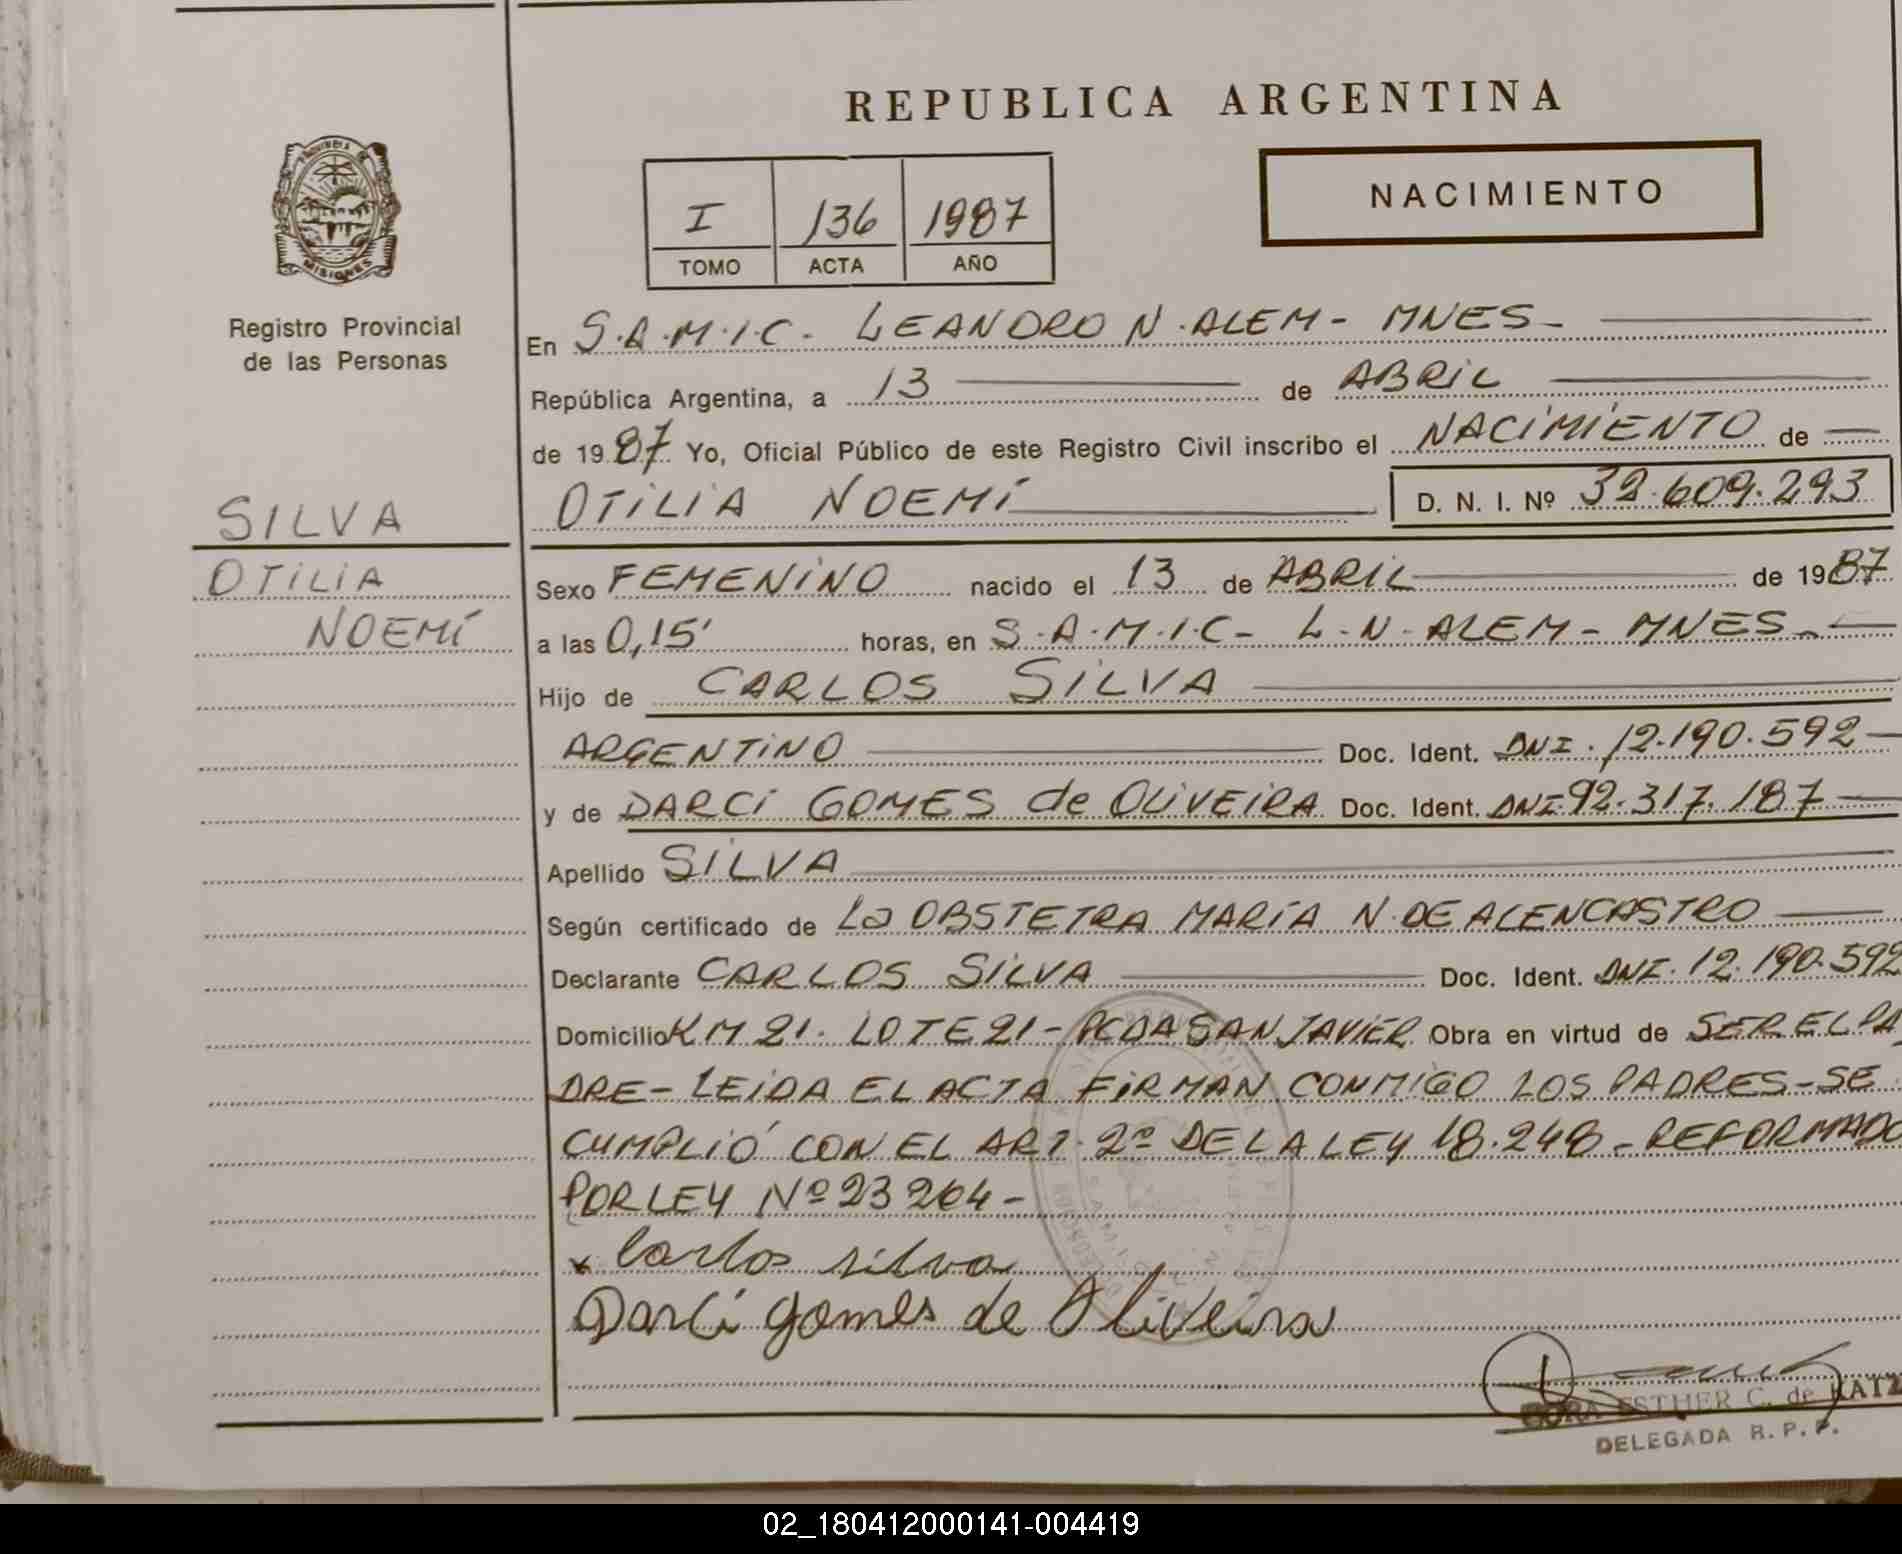 REPUBLICA ARGENTINA
PROVINCIA DE
MISIONES
Registro Provincial
de las Personas
I 136 1987
TOMO ACTA AÑO
NACIMIENTO
En S.A.M.I.C. LEANDRO N. ALEM - MNES -
República Argentina, a 13 de ABRIL
de 1987 Yo, Oficial Público de este Registro Civil inscribo el NACIMIENTO de
SILVA
OTILIA NOEMÍ
OTILIA NOEMÍ D. N. I. Nº 32.609.293
Sexo FEMENINO nacido el 13 de ABRIL de 1987
a las 0,15' horas, en S.A.M.I.C - L.N. ALEM - MNES -
Hijo de CARLOS SILVA
ARGENTINO Doc. Ident. DNI. 12.190.592
y de DARCI GOMES de OLIVEIRA Doc. Ident. DNI 92.317.187
Apellido SILVA
Según certificado de La OBSTETRA MARÍA N. DE ALENCASTRO
Declarante CARLOS SILVA Doc. Ident. DNI. 12.190.592
Domicilio KM 21. LOTE 21 - PCDA SAN JAVIER Obra en virtud de SER EL PA
DRE - LEIDA EL ACTA FIRMAN CONMIGO LOS PADRES - SE
CUMPLIÓ CON EL ART. 2º DE LA LEY 18.248 - REFORMADO
POR LEY Nº 23264 -
x Carlos silva
Darci gomes de Oliveira
ESTHER C. de KATZ
DELEGADA R. P. P.
02_180412000141-004419